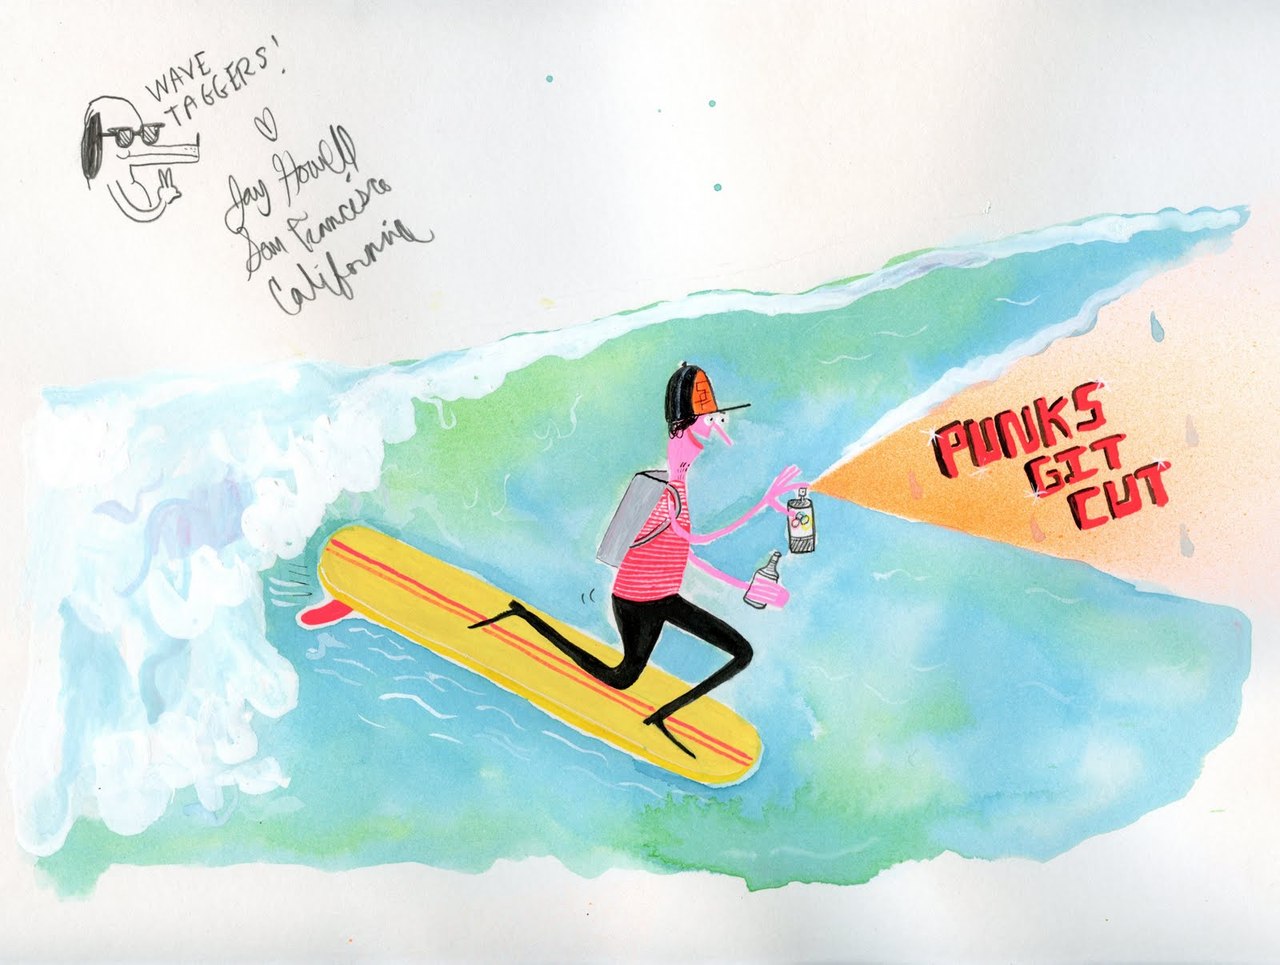 WAVE
TAGGERS!
Jay Howell
San Francisco
California
SF
PUNKS
GIT
CUT